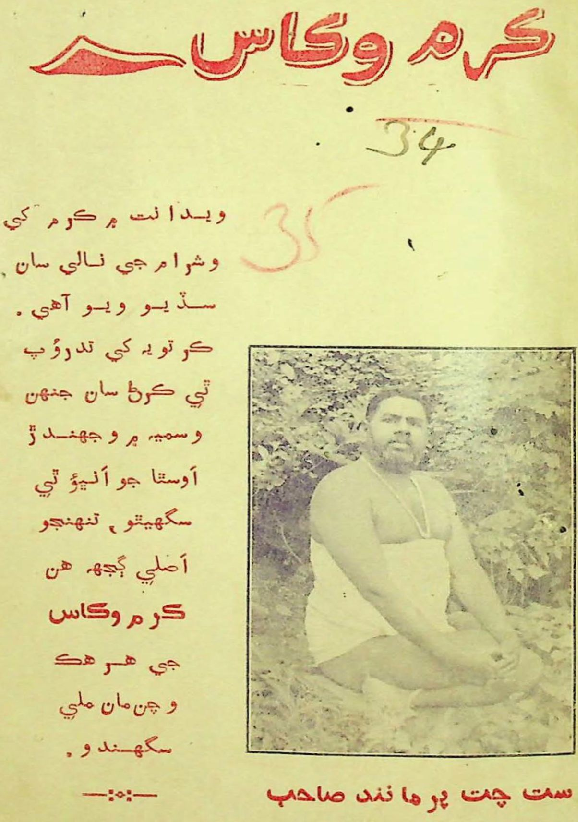 ڪرم وڪاس
34
35
ويدانت ۾ ڪرم کي
وشرام جي نالي سان
سڏيو ويو آهي.
ڪرتويه کي تدروُپ
ٿي ڪرڻ سان جنهن
وسميه ۾ وجهندڙ
اَوسٿا جو اَنڀؤ ٿي
سگهيٿو، تنهنجو
اَصلي ڳجهه هن
ڪرم وڪاس
جي هر هڪ
وچن مان ملي
سگهندو.
ست چت پرمانند صاحب